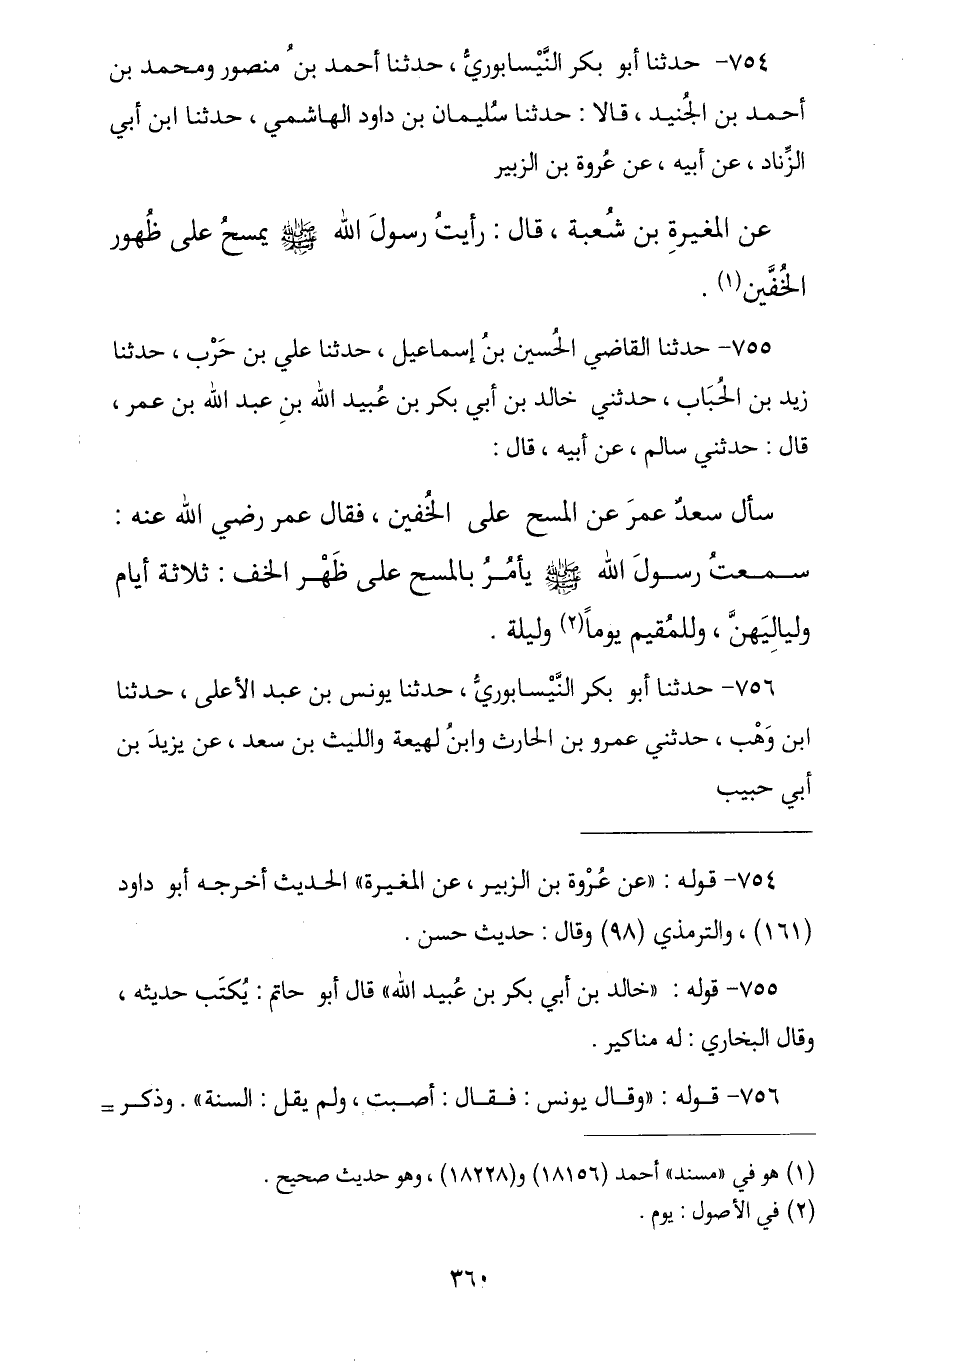 ٧٥٤- حدثنا أبو بكر النَّيْسابوريُّ ، حدثنا أحمد بنُ منصور ومحمد بن
أحمد بن الجُنيد ، قالا : حدثنا سُليمان بن داود الهاشمي ، حدثنا ابن أبي
الزِّناد ، عن أبيه ، عن عُروة بن الزبير
عن المغيرةِ بن شُعبة ، قال : رأيتُ رسولَ الله ﷺ يمسحُ على ظُهور
الخُفَّين(١) .
٧٥٥- حدثنا القاضي الحُسين بنُ إسماعيل ، حدثنا علي بن حَرْب ، حدثنا
زيد بن الحُبَاب ، حدثني خالد بن أبي بكر بن عُبيد الله بنِ عبد الله بن عمر ،
قال : حدثني سالم ، عن أبيه ، قال :
سأل سعدٌ عمرَ عن المسح على الخُفين ، فقال عمر رضي الله عنه :
سمعتُ رسولَ الله ﷺ يأمُرُ بالمسح على ظَهْر الخف : ثلاثة أيام
ولياليَهِنَّ ، وللمُقيم يوماً(٢) وليلة .
٧٥٦- حدثنا أبو بكر النَّيْسابوريُّ ، حدثنا يونس بن عبد الأعلى ، حدثنا
ابن وَهْب ، حدثني عمرو بن الحارث وابنُ لهيعة والليث بن سعد ، عن يزيدَ بن
أبي حبيب
٧٥٤- قوله : «عن عُرْوة بن الزبير ، عن المغيرة» الحديث أخرجه أبو داود
(١٦١) ، والترمذي (٩٨) وقال : حديث حسن .
٧٥٥- قوله : «خالد بن أبي بكر بن عُبيد الله» قال أبو حاتم : يُكتَب حديثه ،
وقال البخاري : له مناكير .
٧٥٦- قوله : «وقال يونس : فقال : أصبت ، ولم يقل : السنة» . وذكر =
(١) هو في «مسند» أحمد (١٨١٥٦) و(١٨٢٢٨) ، وهو حديث صحيح .
(٢) في الأصول : يوم .
٣٦٠